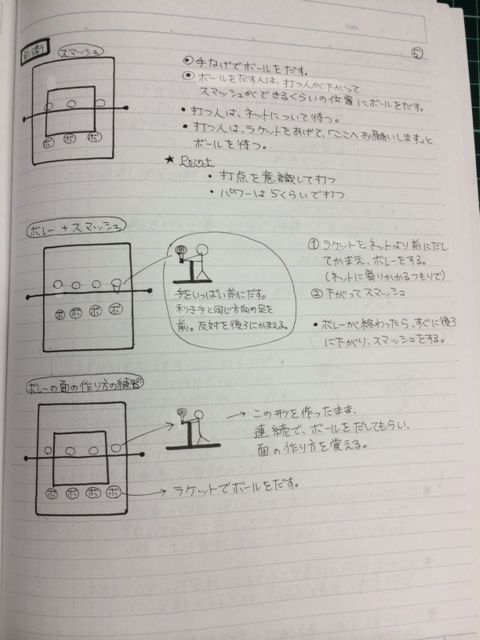 前衛
スマッシュ
⑤
◉ 手なげでボールをだす。
◉ ボールをだす人は、打つ人が下がって
スマッシュができるくらいの位置にボールをだす。
• 打つ人は、ネットについて待つ。
• 打つ人は、ラケットをあげて、「ここへお願いします」と
ボールを待つ。
★ Point
• 打点を意識して打つ
• パワーは5くらいで打つ
ボ ボ ボ ボ
ボレー + スマッシュ
① ラケットをネットより前にだし
てかまえ、ボレーをする。
(ネットに寄りかかるつもりで)
② 下がってスマッシュ
• ボレーが終わったら、すぐに後ろ
に下がり、スマッシュをする。
手をいっぱい前にだす。
利き手と同じ方向の足を
前。反対を後ろにかまえる。
ボ ボ ボ ボ
ボレーの面の作り方の練習
→ この形を作ったまま、
連続で、ボールをだしてもらい、
面の作り方を覚える。
ボ ボ ボ ボ
→ ラケットでボールをだす。